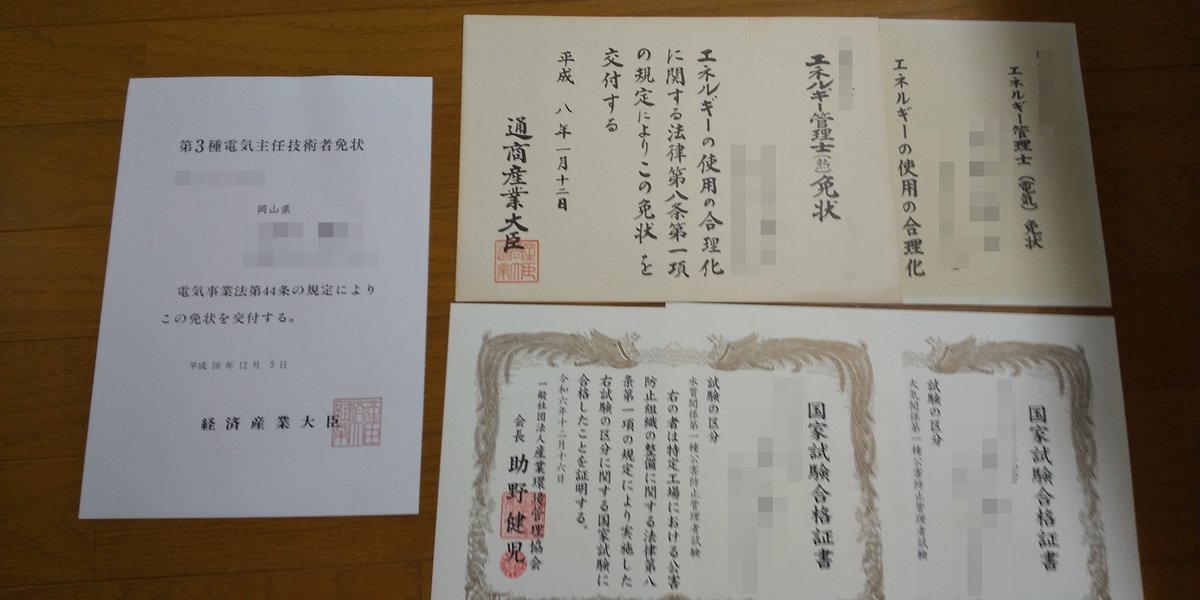 第3種電気主任技術者免状
岡山県
電気事業法第44条の規定により
この免状を交付する。
平成 30 年 12 月 3 日
経済産業大臣
エネルギー管理士(熱)免状
エネルギーの使用の合理化
に関する法律第八条第一項
の規定によりこの免状を
交付する
平成 八年一月十二日
通商産業大臣
エネルギー管理士(電気)免状
エネルギーの使用の合理化
国家試験合格証書
試験の区分
水質関係第一種公害防止管理者試験
右の者は特定工場における公害
防止組織の整備に関する法律第八
条第一項の規定により実施した
右試験の区分に関する国家試験に
合格したことを証明する。
令和六年十二月十六日
一般社団法人産業環境管理協会
会長 助野健児
国家試験合格証書
試験の区分
大気関係第一種公害防止管理者試験